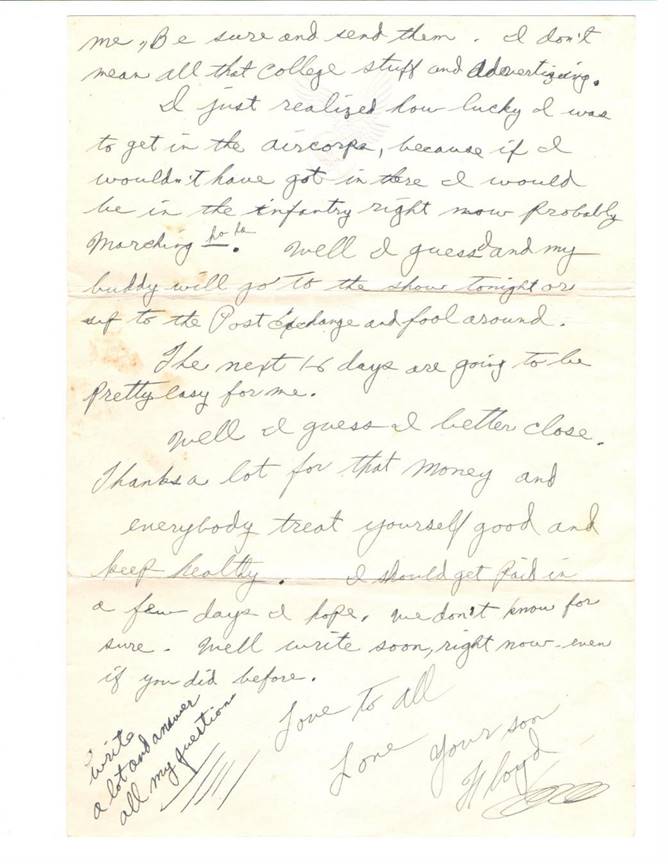 me, Be sure and send them. I don't
mean all that college stuff and addvertizing.
I just realized how lucky I was
to get in the aircorps, because if I
wouldn't have got in there I would
be in the infantry right now probably
Marching ha ha. Well I guess I and my
buddy will go to the show tonight or
to the Post Exchange and fool around.
The next 16 days are going to be
Pretty easy for me.
Well I guess I better close.
Thanks a lot for that money and
everybody treat yourself good and
keep healthy. I should get Paid in
a few days I hope. We don't know for
sure. Well write soon, right now even
if you did before.
Love to all
Love Your son
Floyd
write
a lot and answer
all my questions